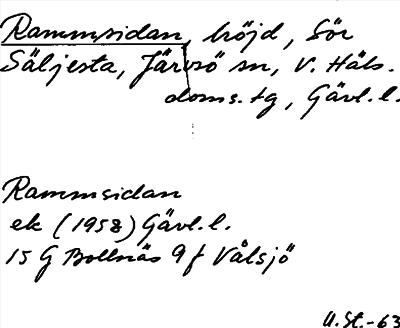 Rammsidan, höjd, Sör
Säljesta, Järvsö sn, V. Häls.
doms.tg, Gävl.l.
Rammsidan
ek (1958) Gävl.l.
15 G Bollnäs 9f Vålsjö
U.St.-63